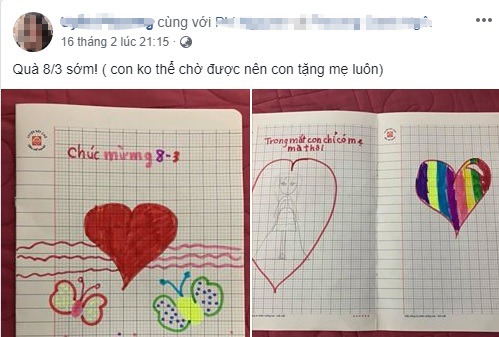 cùng với
16 tháng 2 lúc 21:15 ·
Quà 8/3 sớm! ( con ko thể chờ được nên con tặng mẹ luôn)
Chúc mừng 8-3
Trong mắt con chỉ có mẹ
mà thôi